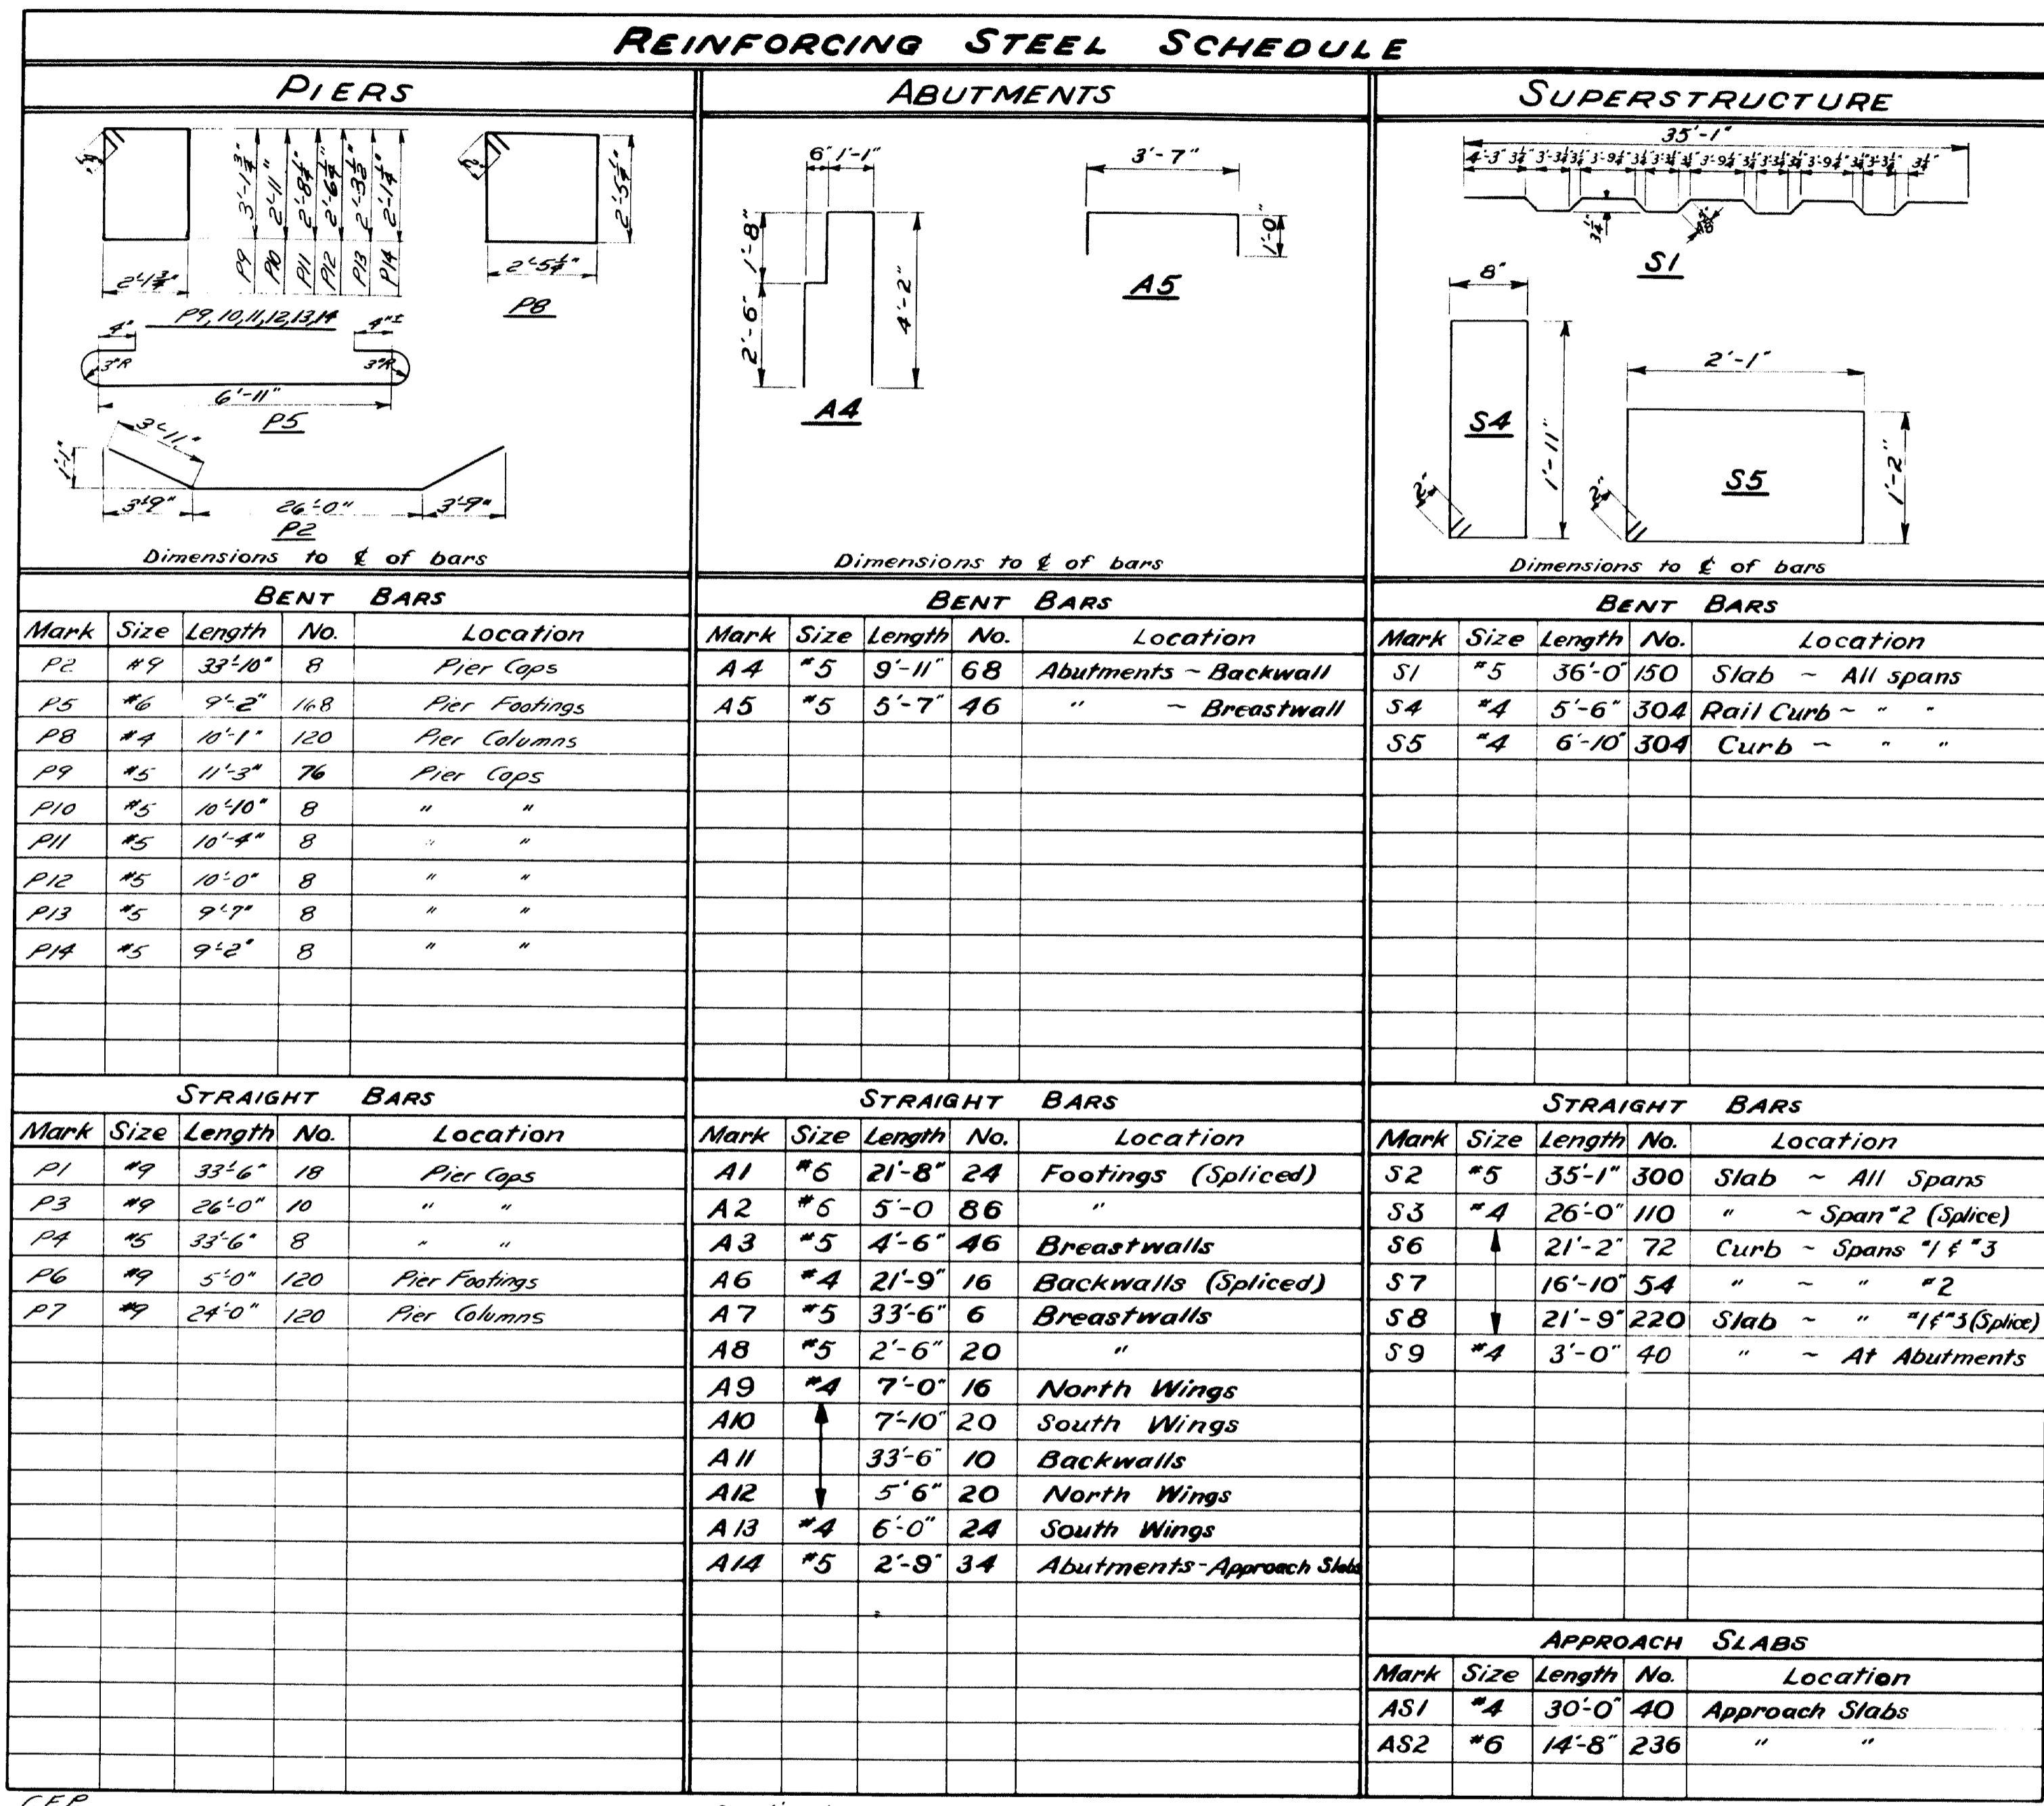 REINFORCING STEEL SCHEDULE
PIERS
3'-1¾" 2'-11" 2'-8¼" 2'-6¼" 2'-3½" 2'-1¼"
P9 P10 P11 P12 P13 P14
2'-1¾"
P9, 10, 11, 12, 13, 14
2'-5¼"
2'-5¼"
P8
4" 4"±
3"R 3"R
6'-11"
P5
3'-11"
1'-1"
3'-9" 26'-0" 3'-9"
P2
Dimensions to ℄ of bars
BENT BARS
Mark Size Length No. Location
P2 #9 33'-10" 8 Pier Caps
P5 #6 9'-2" 168 Pier Footings
P8 #4 10'-1" 120 Pier Columns
P9 #5 11'-3" 76 Pier Caps
P10 #5 10'-10" 8 " "
P11 #5 10'-4" 8 " "
P12 #5 10'-0" 8 " "
P13 #5 9'-7" 8 " "
P14 #5 9'-2" 8 " "
STRAIGHT BARS
Mark Size Length No. Location
P1 #9 33'-6" 18 Pier Caps
P3 #9 26'-0" 10 " "
P4 #5 33'-6" 8 " "
P6 #9 5'-0" 120 Pier Footings
P7 #9 24'-0" 120 Pier Columns
CFP
ABUTMENTS
6" 1'-1"
1'-8"
2'-6"
4'-2"
A4
3'-7"
1'-0"
A5
Dimensions to ℄ of bars
BENT BARS
Mark Size Length No. Location
A4 #5 9'-11" 68 Abutments ~ Backwall
A5 #5 5'-7" 46 " ~ Breastwall
STRAIGHT BARS
Mark Size Length No. Location
A1 #6 21'-8" 24 Footings (Spliced)
A2 #6 5'-0 86 "
A3 #5 4'-6" 46 Breastwalls
A6 #4 21'-9" 16 Backwalls (Spliced)
A7 #5 33'-6" 6 Breastwalls
A8 #5 2'-6" 20 "
A9 #4 7'-0" 16 North Wings
A10 7'-10" 20 South Wings
A11 33'-6" 10 Backwalls
A12 5'6" 20 North Wings
A13 #4 6'-0" 24 South Wings
A14 #5 2'-9" 34 Abutments-Approach Slabs
SUPERSTRUCTURE
35'-1"
4'-3" 3¼" 3'-3¼" 3¼" 3'-9¼" 3¼" 3'-3¼" 3¼" 3'-9¼" 3¼" 3'-3¼" 3¼" 3'-9¼" 3¼" 3'-3¼" 3¼"
3¼"
S1
8"
S4
1'-11"
2"
2'-1"
S5
1'-2"
2"
Dimensions to ℄ of bars
BENT BARS
Mark Size Length No. Location
S1 #5 36'-0" 150 Slab ~ All spans
S4 #4 5'-6" 304 Rail Curb ~ " "
S5 #4 6'-10" 304 Curb ~ " "
STRAIGHT BARS
Mark Size Length No. Location
S2 #5 35'-1" 300 Slab ~ All Spans
S3 #4 26'-0" 110 " ~ Span #2 (Splice)
S6 21'-2" 72 Curb ~ Spans #1 & #3
S7 16'-10" 54 " ~ " #2
S8 21'-9" 220 Slab ~ " #1 & #3 (Splice)
S9 #4 3'-0" 40 " ~ At Abutments
APPROACH SLABS
Mark Size Length No. Location
AS1 #4 30'-0" 40 Approach Slabs
AS2 #6 14'-8" 236 " "